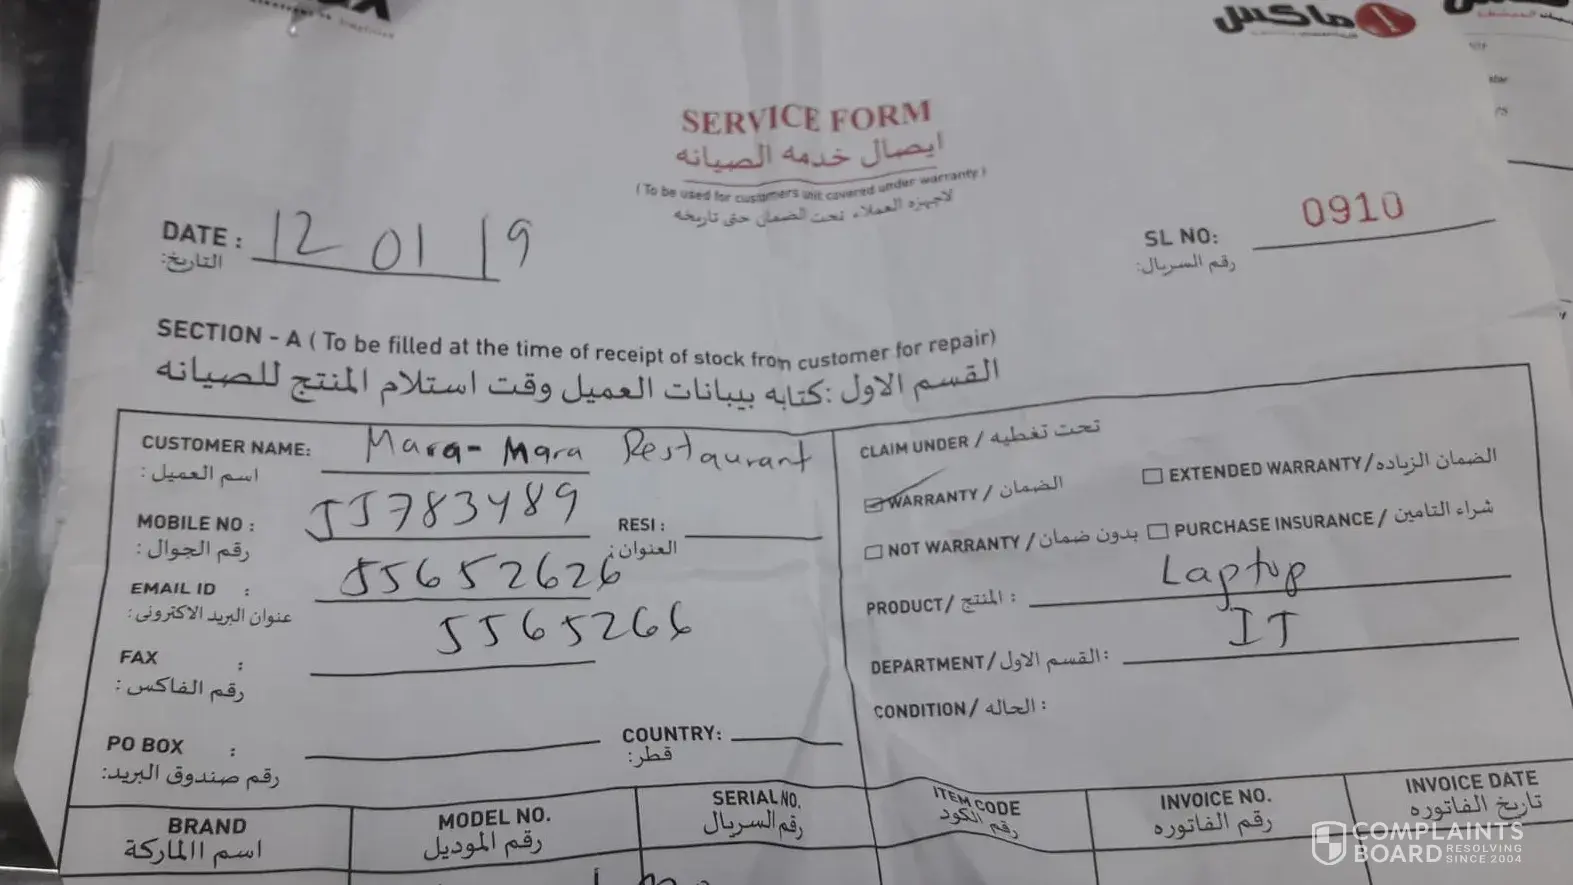 ماكس
SERVICE FORM
ايصال خدمه الصيانه
(To be used for customers unit covered under warranty)
لاجهزه العملاء تحت الضمان حتى تاريخه
DATE : 12 01 19
التاريخ:
SL NO: 0910
رقم السريال:
SECTION - A ( To be filled at the time of receipt of stock from customer for repair)
القسم الاول :كتابه بيانات العميل وقت استلام المنتج للصيانه
CUSTOMER NAME: Mara-Mara Restaurant
اسم العميل :
MOBILE NO : 55783489
رقم الجوال :
RESI :
العنوان:
EMAIL ID : 55652626
عنوان البريد الاكترونى:
5565266
FAX :
رقم الفاكس :
PO BOX :
رقم صندوق البريد:
COUNTRY:
قطر:
CLAIM UNDER / تحت تغطيه
WARRANTY / الضمان
EXTENDED WARRANTY / الضمان الزياده
NOT WARRANTY / بدون ضمان
PURCHASE INSURANCE / شراء التامين
PRODUCT / المنتج : Laptop
DEPARTMENT / القسم الاول: IT
CONDITION / الحاله :
BRAND
اسم االماركة
MODEL NO.
رقم الموديل
SERIAL NO.
رقم السريال
ITEM CODE
رقم الكود
INVOICE NO.
رقم الفاتوره
INVOICE DATE
تاريخ الفاتوره
COMPLAINTS
BOARD RESOLVING
SINCE 2004